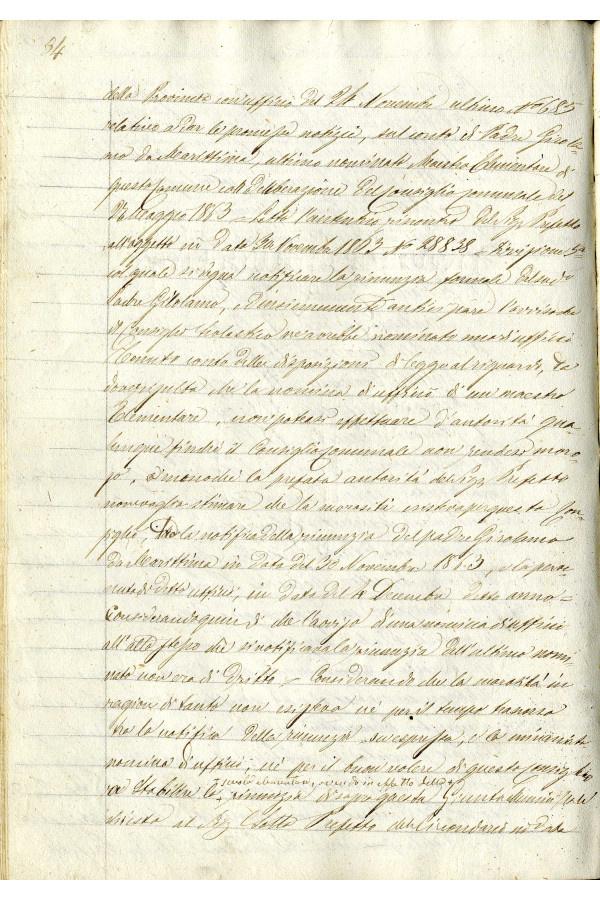 84
della Provincia con uffizio del 24 Novembre ultimo N° 685
relativo a dar le principe notizie, sul conto di Padre Girola-
mo da Marittima, ultimo nominato Maestro Elementare di
questo Comune con deliberazione del Consiglio Comunale del
Maggio 1863 = Letta l'autentica, rinuncia del Sig. Prefetto
all'oggetto in data 30 Novembre 1863 N° 28838 = Divisione 3a
col quale si degna notificare la rinunzia formale del sud°
Padre Girolamo, ed anticipare l'avviso che
il Consiglio Scolastico ne avrebbe nominato uno d'ufficio
Tenuto conto delle disposizioni di legge al riguardo, da
che la nomina d'ufficio di un maestro
Elementare, non potersi effettuare d'autorità qua-
lunque finchè il Consiglio Comunale non rendesi moro-
so, ammenochè la prefata autorità del Sig. Prefetto
non voglia stimare che la morosità in questo Con-
siglio, tra la notifica della rinunzia del padre Girolamo
da Marittima in data del 30 Novembre 1863, e la perve-
nuta di detto uffizio, in data del 4 Decembre detto anno =
Considerando quindi che l'avviso di una nomina d'ufficio
all'atto stesso che si notificava la rinunzia dell'ultimo nomi-
nato non era di dritto = Considerando che la morosità in
ragion di tanto non esisteva nè per il tempo trascorso
tra la notifica della rinunzia su espressa, e la minacciata
nomina d'ufficio, nè per il buon volere di questo Consiglio
a stabilire le scuole elementari, essendo in atto della
rinunzia di sopra questa Giunta Municipale
diresta al Sig. Sotto Prefetto del Circondario in data